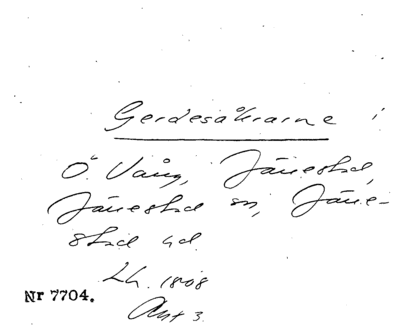 Gerdesåkrarne i
Ö. Vång, Järrestad,
Järrestad sn, Järre-
stad hd.
Lh. 1808
Nr 7704.
Akt 3.